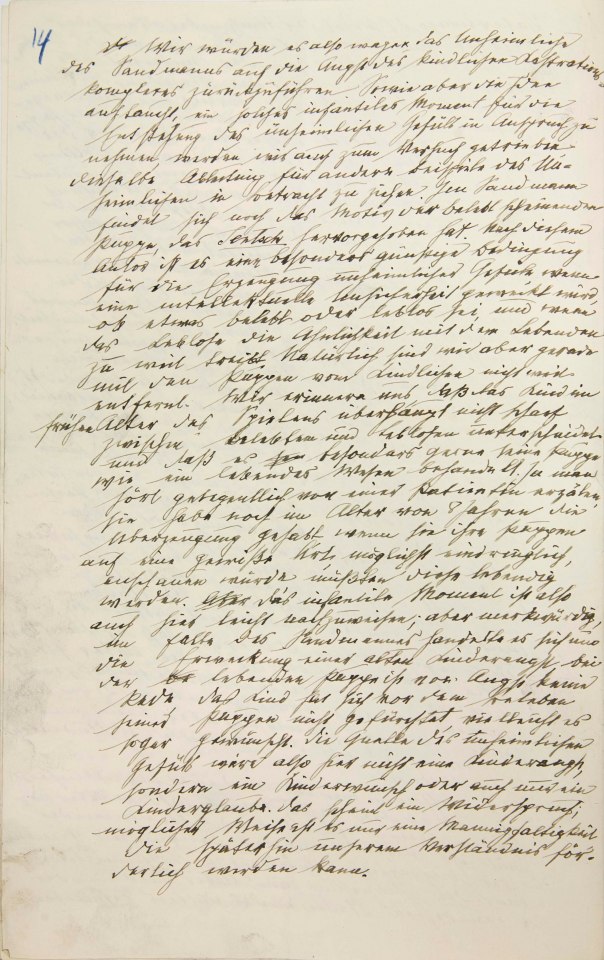 14
Wir würden es also wagen das Unheimliche
des Sandmanns auf die Angst des kindlichen Kastrations-
komplexes zurückzuführen. Sowie aber die Idee
auftaucht, ein solches infantiles Moment für die
Entstehung des unheimlichen Gefühls in Anspruch zu
nehmen, werden wir auch zum Versuch getrieben
dieselbe Ableitung für andere Beispiele des Un-
heimlichen in Betracht zu ziehen. Im Sandmann
findet sich noch das Motiv der belebt scheinenden
Puppe, das Jentsch hervorgehoben hat. Nach diesem
Autor ist es eine besonders günstige Bedingung
für die Erzeugung unheimlicher Gefühle wenn
eine intellektuelle Unsicherheit geweckt wird,
ob etwas belebt oder leblos sei, und wenn
das Leblose die Ähnlichkeit mit dem Lebenden
zu weit treibt. Natürlich sind wir aber gerade
mit den Puppen vom Kindlichen nicht weit
entfernt. Wir erinnern uns, daß das Kind im
frühen Alter des Spielens überhaupt nicht scharf
zwischen Belebten und Leblosen unterscheidet
und daß es besonders gerne seine Puppe
wie ein lebendes Wesen behandelt. Ja man
hört gelegentlich von einer Patientin erzählen,
sie habe noch im Alter von 8 Jahren die
Überzeugung gehabt wenn sie ihre Puppen
auf eine gewiße Art, möglichst eindringlich,
anschauen würde müßten diese lebendig
werden. Aber das infantile Moment ist also
auch hier leicht nachzuweisen; aber merkwürdig,
im Falle des Sandmannes handelte es sich um
die Erweckung einer alten Kinderangst, bei
der lebenden Puppe ist von Angst keine
Rede, das Kind hat sich vor dem Beleben
seiner Puppen nicht gefürchtet, vielleicht es
sogar gewünscht. Die Quelle des unheimlichen
Gefühls wäre also hier nicht eine Kinderangst,
sondern ein Kinderwunsch oder auch nur ein
Kinderglaube. Das scheint ein Widerspruch;
möglicher Weise ist es nur eine Mannigfaltigkeit
die später hin unserem Verständnis för-
derlich werden kann.